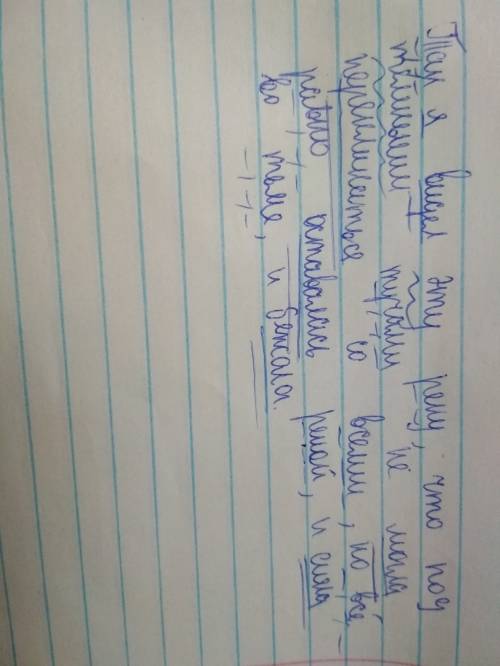 Так я видел эту реку, что под
тёмными тучами не могла
перекликаться со всеми, но всё
равно оставалась рекой, и сияла
во тьме, и бежала.